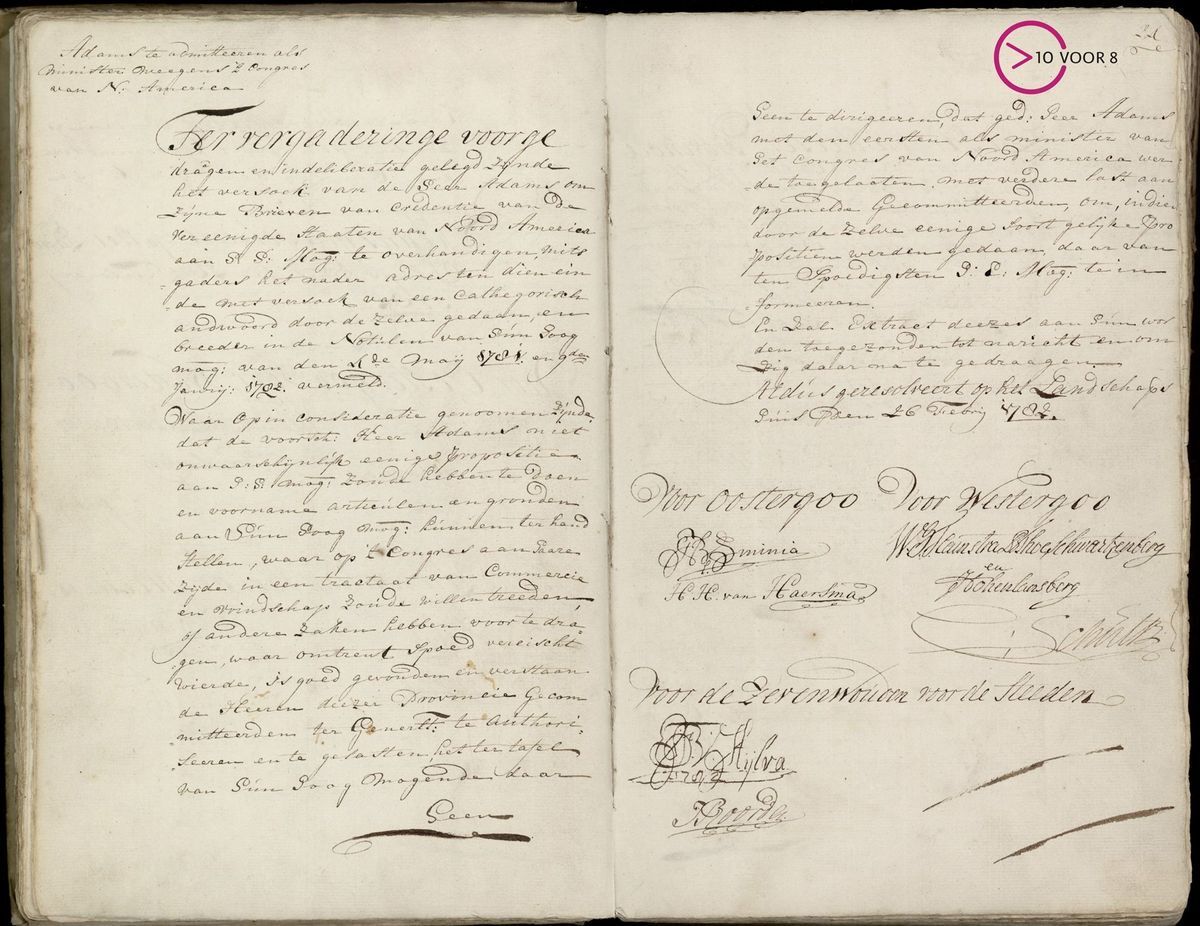 Adams te admitteeren als
minister weegens 't Congres
van N: America
Ter vergaderinge voorge
dragen en in deliberatie gelegd zynde
het versoek van de Heer Adams om
zyne Brieven van Credentie van de
Vereenigde Staaten van Noord America
aan H: H: Mog: te overhandigen mits
gaders het nader adres ten dien ein
de met versoek van een Cathegorisch
andwoord door de zelve gedaan, en
breeder in de Notulen van Hún Hoog
mog: van den 4de Maij 1781. en 9den
Janrij: 1782. vermeld.
Waar op in consideratie genoomen zynde,
dat de voorsch: Heer Adams niet
onwaarschynlyk eenige Propositie
aan H: H: mog: zoude hebben te doen
en voorname articúlen en gronden
aan Hún Hoog Mog: kúnnen ter hand
stellen, waar op 't Congres aan Haare
zyde in een tractaat van Commercie
en vrindschap zoude willen treeden,
of andere zaken hebben voor te dra-
gen, waar omtrent spoed vereischt
wierde, is goed gevonden en verstaan
de Heeren deezer Provincie Gecom
mitteerden ter Generlt: te Authori-
seeren en te gelasten, het ter tafel
van Hún Hoog Mogende daar
Heen
>10 VOOR 8
Heen te dirigeeren, dat ged: Heer Adams
met den eersten als minister van
het Congres van Noord America wer
de toegelaaten, met verdere last aan
opgemelde Gecommitteerden, om, indien
door de zelve eenige soort gelyke Pro
positien werden gedaan, daar van
ten spoedigsten H: E: Mog: te in
formeeren.
En zal Extract deezes aan Hún wor
den toegezonden tot naricht en om
zig daar na te gedraagen.
Aldús geresolveert op het Landschaps
Húis den 26 Febrij 1782.
Voor Oostergoo Voor Westergoo
Sminia
H. H. van Haersma
thoe Schwartzenberg
en
Hohenlansberg
Voor de Zevenwouden voor de Steeden
Sijlva